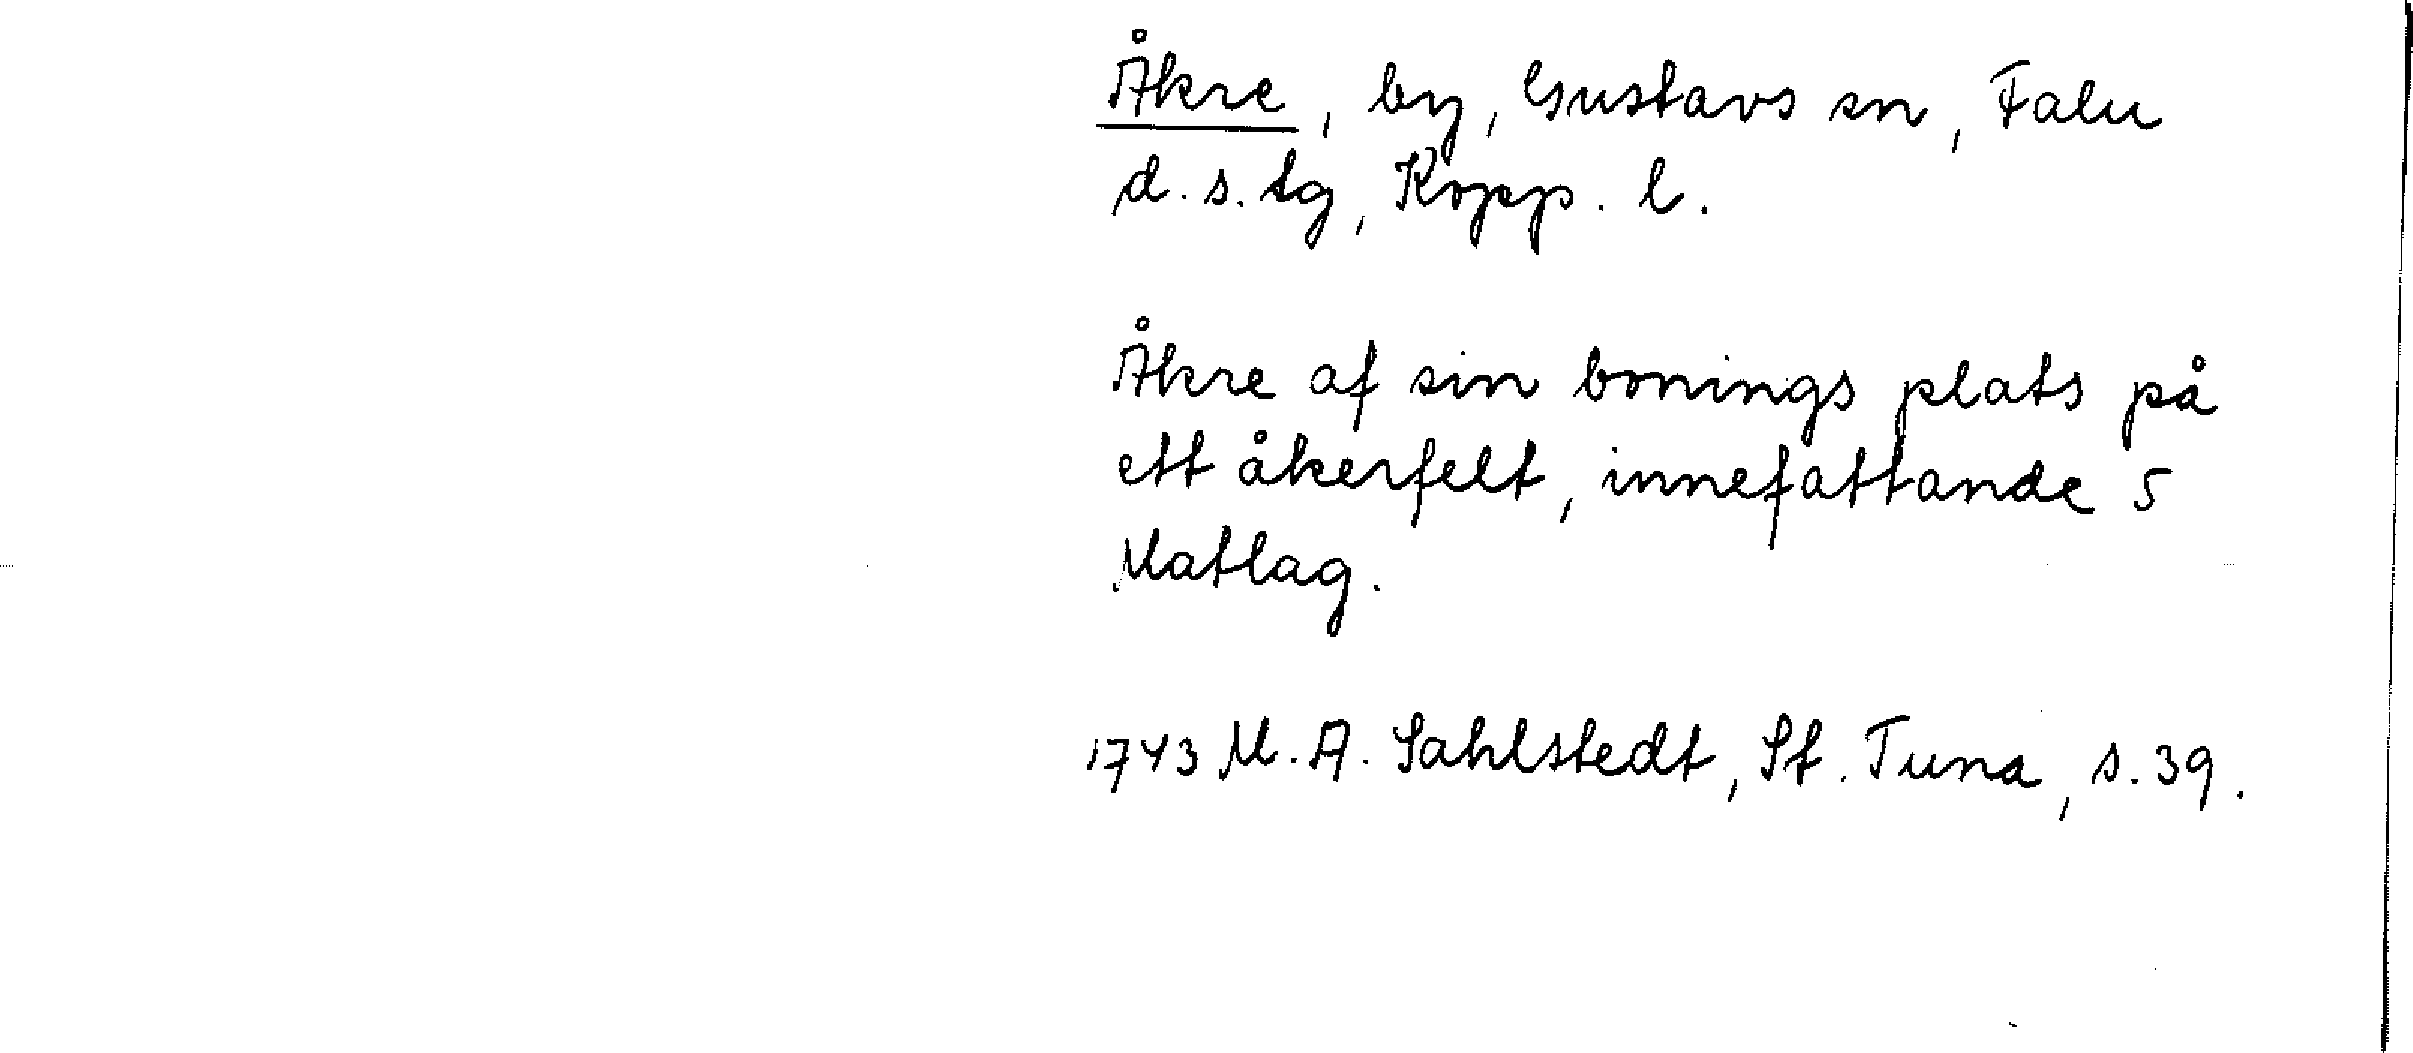 Åkre, by, Gustavs sn, Falu
d.s.lg, Kopp. l.
Åkre af sin bonings plats på
ett åkerfelt, innefattande 5
Matlag.
1743 M.A. Sahlstedt, St. Tuna, s. 39.